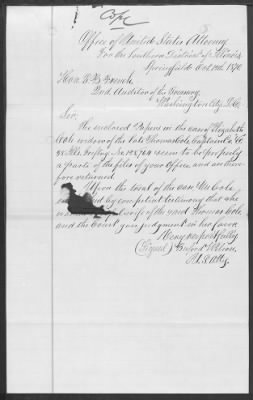 Copy
Office of United States Attorney
For the Southern District of Illinois
Springfield Oct 19th 1870
Hon. B French
2nd Auditor of the Treasury
Washington City D.C.
Sir
The enclosed Papers in the case of Elizabeth
Cole widow of the late Thomas Cole
seem to be properly
a part of the files of your Office and are there
fore returned.
Upon the trial of the case Mrs Cole
by competent testimony that she
wife of the said Thomas Cole
and the Court gave judgment in her favor
Very respectfully
(Signed)
U.S. Atty